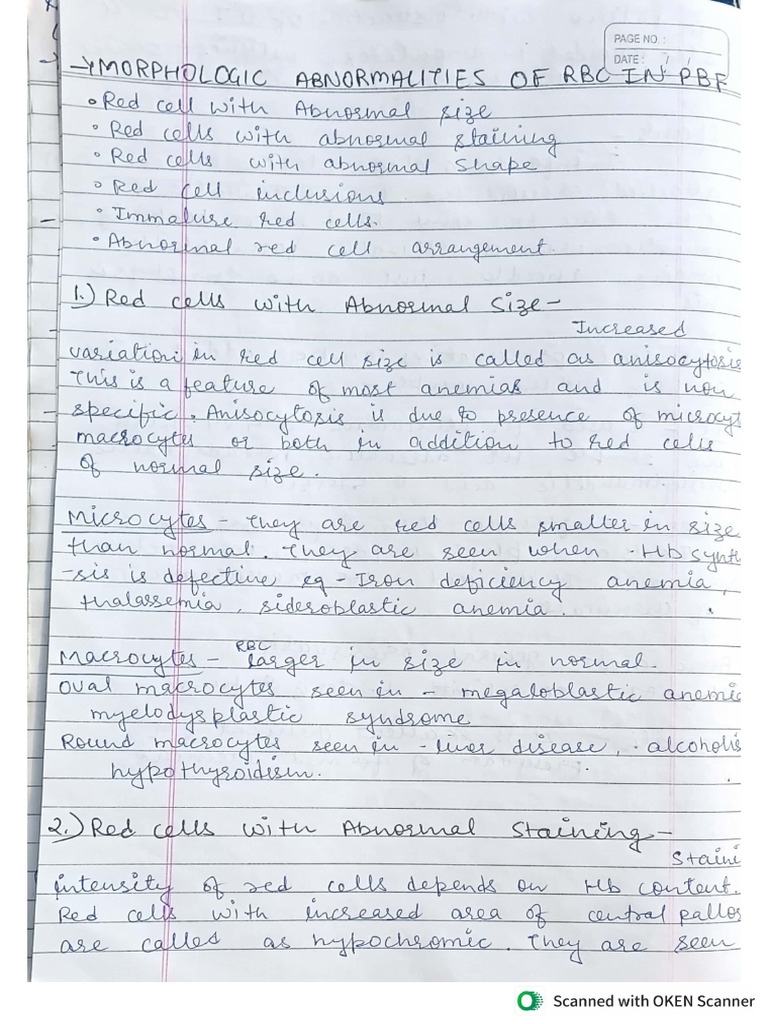 PAGE NO.:
DATE: / /
→ MORPHOLOGIC ABNORMALITIES OF RBC IN PBF
• Red cell with Abnormal size
• Red cells with abnormal staining
• Red cells with abnormal shape
• Red cell inclusions
• Immature red cells.
• Abnormal red cell arrangement.
1.) Red cells with Abnormal Size-
Increased
variation in red cell size is called as anisocytosis
This is a feature of most anemias and is non
specific. Anisocytosis is due to presence of microcyt
macrocytes or both in addition to red cells
of normal size.
Microcytes - They are red cells smaller in size
than normal. They are seen when Hb synth
-sis is defective eg - Iron deficiency anemia,
thalassemia, sideroblastic anemia.
Macrocytes - RBC larger in size in normal.
Oval macrocytes seen in - megaloblastic anemic
myelodysplastic syndrome
Round macrocytes seen in - liver disease, alcoholis
hypothyroidism.
2.) Red cells with Abnormal Staining -
Staini
intensity of red cells depends on Hb content.
Red cells with increased area of central pallor
are called as hypochromic. They are seen
Scanned with OKEN Scanner